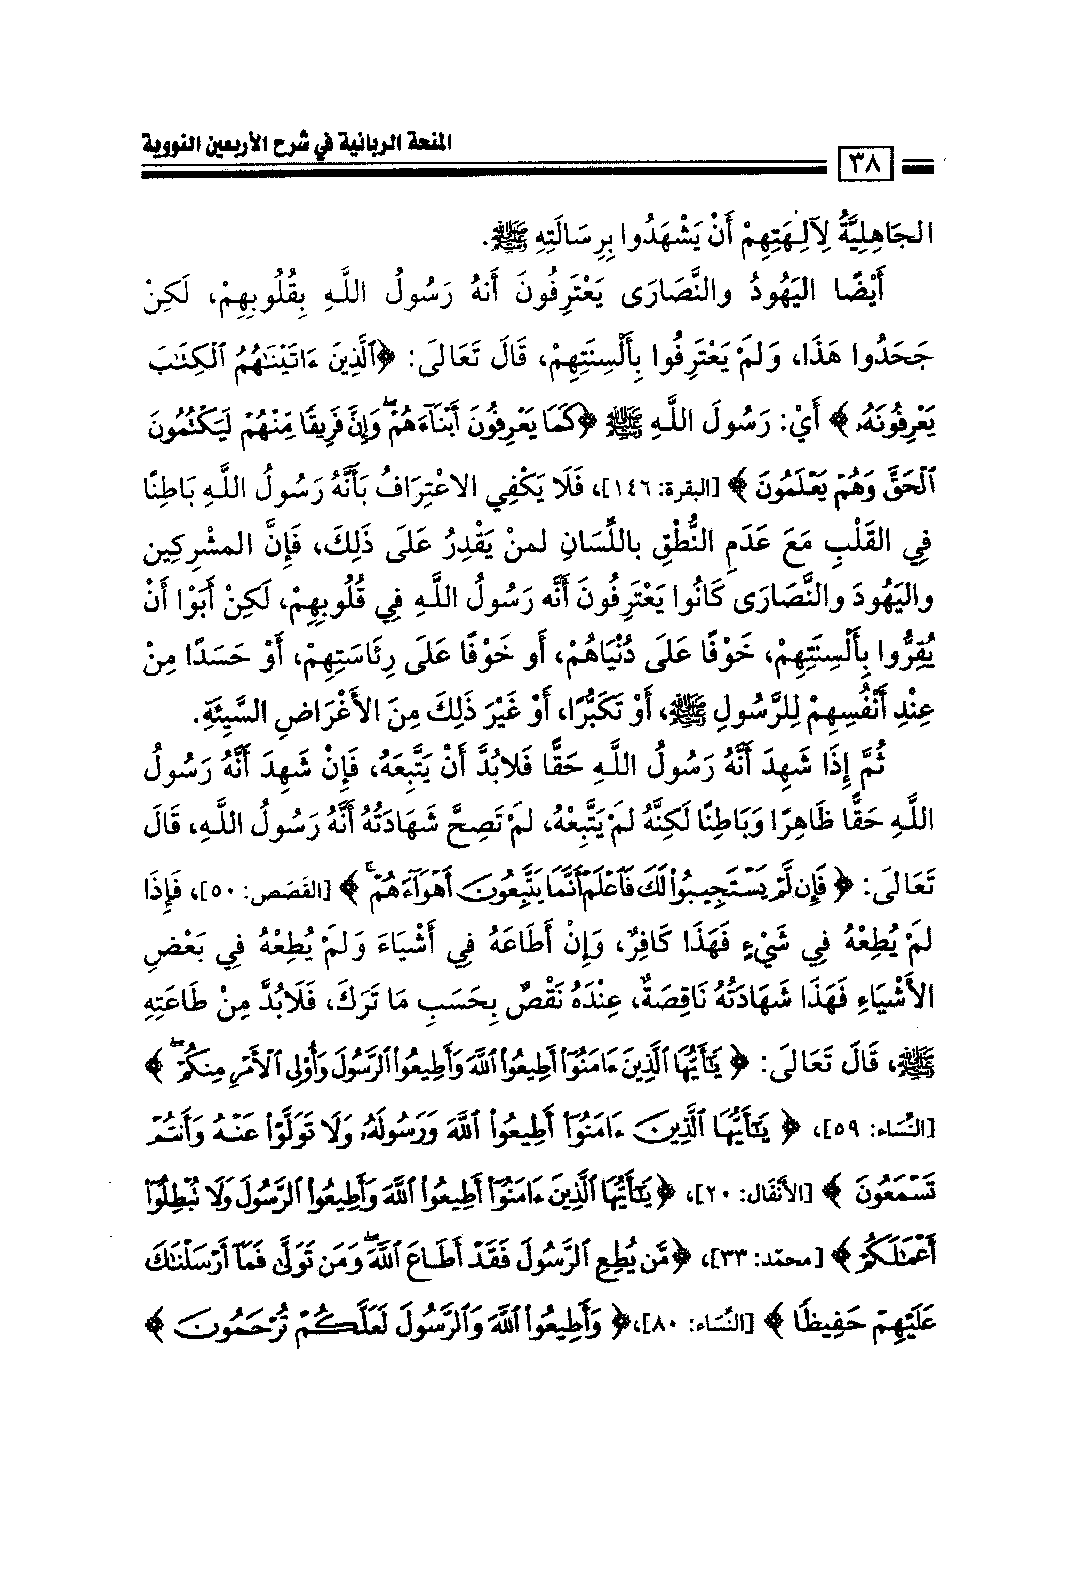 المنحة الربانية في شرح الأربعين النووية
٣٨
الجَاهِلِيَّةُ لِآلِهَتِهِمْ أَنْ يَشْهَدُوا بِرِسَالَتِهِ ﷺ.
أَيْضًا اليَهُودُ والنَّصَارَى يَعْتَرِفُونَ أَنهُ رَسُولُ اللَّهِ بِقُلُوبِهِمْ، لَكِنْ
جَحَدُوا هَذَا، وَلَمْ يَعْتَرِفُوا بِأَلْسِنَتِهِمْ، قَالَ تَعَالَى: ﴿ٱلَّذِينَ ءَاتَيْنَٰهُمُ ٱلْكِتَٰبَ
يَعْرِفُونَهُۥ﴾ أَيْ: رَسُولَ اللَّهِ ﷺ ﴿كَمَا يَعْرِفُونَ أَبْنَآءَهُمْ ۖ وَإِنَّ فَرِيقًا مِّنْهُمْ لَيَكْتُمُونَ
ٱلْحَقَّ وَهُمْ يَعْلَمُونَ﴾ [البقرة: ١٤٦]، فَلَا يَكْفِي الاعْتِرَافُ بَأَنَّهُ رَسُولُ اللَّهِ بَاطِنًا
فِي القَلْبِ مَعَ عَدَمِ النُّطْقِ باللِّسَانِ لمنْ يَقْدِرُ عَلَى ذَلِكَ، فَإِنَّ المشْرِكِين
واليَهُودَ والنَّصَارَى كَانُوا يَعْتَرِفُونَ أَنَّه رَسُولُ اللَّهِ فِي قُلُوبِهِمْ، لَكِنْ أَبَوْا أَنْ
يُقِرُّوا بِأَلْسِنَتِهِمْ، خَوْفًا عَلَى دُنْيَاهُمْ، أَو خَوْفًا عَلَى رِئَاسَتِهِمْ، أَوْ حَسَدًا مِنْ
عِنْدِ أَنْفُسِهِمْ لِلرَّسُولِ ﷺ، أَوْ تَكَبُّرًا، أَوْ غَيْرَ ذَلِكَ مِنَ الأَغْرَاضِ السَّيِئَةِ.
ثُمَّ إِذَا شَهِدَ أَنَّهُ رَسُولُ اللَّهِ حَقًّا فَلابُدَّ أَنْ يَتَّبِعَهُ، فَإِنْ شَهِدَ أَنَّهُ رَسُولُ
اللَّهِ حَقًّا ظَاهِرًا وَبَاطِنًا لَكِنَّهُ لَمْ يَتَّبِعْهُ، لَمْ تَصِحَّ شَهَادَتُهُ أَنَّهُ رَسُولُ اللَّهِ، قَالَ
تَعَالَى: ﴿فَإِن لَّمْ يَسْتَجِيبُوا۟ لَكَ فَٱعْلَمْ أَنَّمَا يَتَّبِعُونَ أَهْوَآءَهُمْ ۚ﴾ [القَصَص: ٥٠]، فَإِذَا
لَمْ يُطِعْهُ فِي شَيْءٍ فَهَذَا كَافِرٌ، وَإِنْ أَطَاعَهُ فِي أَشْيَاءَ وَلَمْ يُطِعْهُ فِي بَعْضِ
الأَشْيَاءِ فَهَذَا شَهَادَتُهُ نَاقِصَةٌ، عِنْدَهُ نَقْصٌ بِحَسَبِ مَا تَرَكَ، فَلَابُدَّ مِنْ طَاعَتِهِ
ﷺ، قَالَ تَعَالَى: ﴿يَٰٓأَيُّهَا ٱلَّذِينَ ءَامَنُوٓا۟ أَطِيعُوا۟ ٱللَّهَ وَأَطِيعُوا۟ ٱلرَّسُولَ وَأُو۟لِى ٱلْأَمْرِ مِنكُمْ ۖ﴾
[النِّسَاء: ٥٩]، ﴿يَٰٓأَيُّهَا ٱلَّذِينَ ءَامَنُوٓا۟ أَطِيعُوا۟ ٱللَّهَ وَرَسُولَهُۥ وَلَا تَوَلَّوْا۟ عَنْهُ وَأَنتُمْ
تَسْمَعُونَ﴾ [الأَنفَال: ٢٠]، ﴿يَٰٓأَيُّهَا ٱلَّذِينَ ءَامَنُوٓا۟ أَطِيعُوا۟ ٱللَّهَ وَأَطِيعُوا۟ ٱلرَّسُولَ وَلَا تُبْطِلُوٓا۟
أَعْمَٰلَكُمْ﴾ [محمّد: ٣٣]، ﴿مَّن يُطِعِ ٱلرَّسُولَ فَقَدْ أَطَاعَ ٱللَّهَ ۖ وَمَن تَوَلَّىٰ فَمَآ أَرْسَلْنَٰكَ
عَلَيْهِمْ حَفِيظًا﴾ [النِّسَاء: ٨٠]، ﴿وَأَطِيعُوا۟ ٱللَّهَ وَٱلرَّسُولَ لَعَلَّكُمْ تُرْحَمُونَ﴾